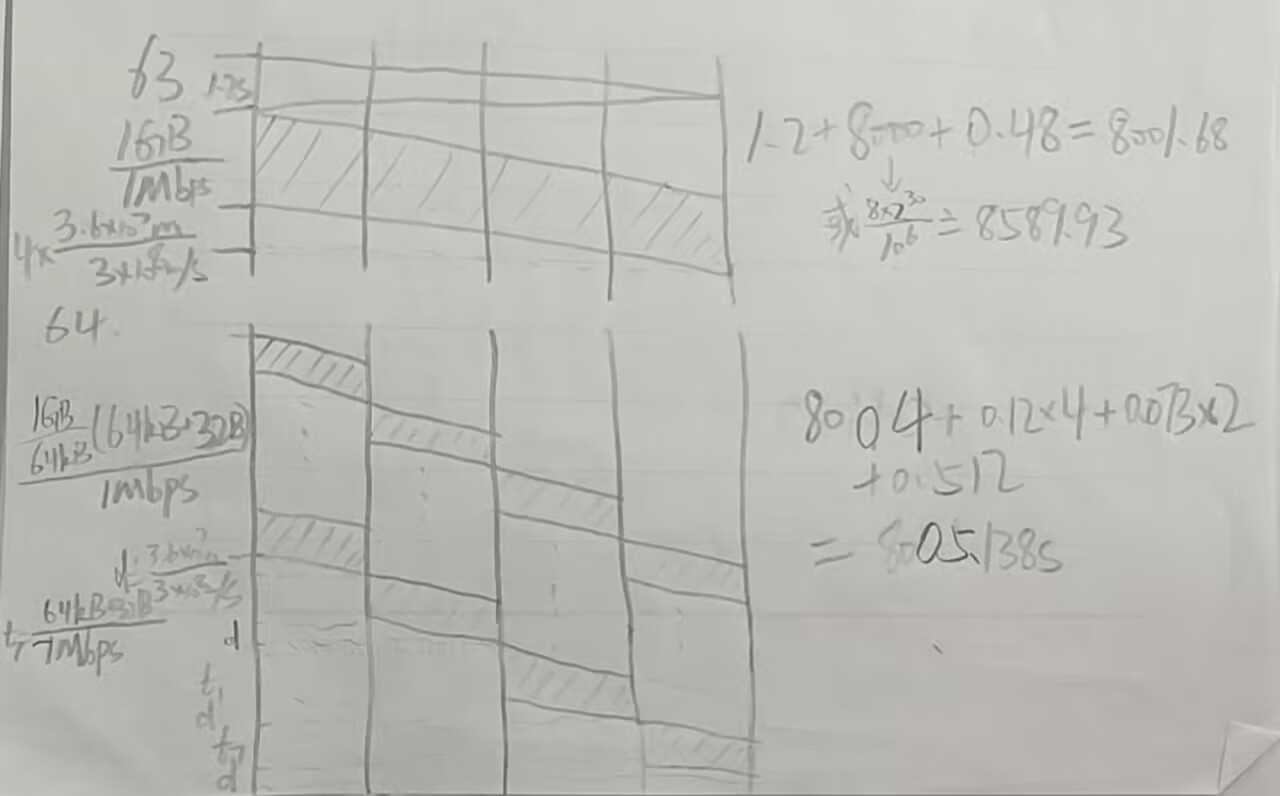 63
1.2s
1GB
1Mbps
4× 3.6×10⁷m
3×10⁸m/s
1.2+8000+0.48=8001.68
↓
或 8×2³⁰
10⁶
≐8589.93
64.
1GB
64kB
(64kB+32B)
1Mbps
d: 3.6×10⁷m
3×10⁸m/s
t₁ 64kB+32B
1Mbps
d
t₁
d
t₁
d
8004+0.12×4+0.073×2
+0.512
=8005.138s